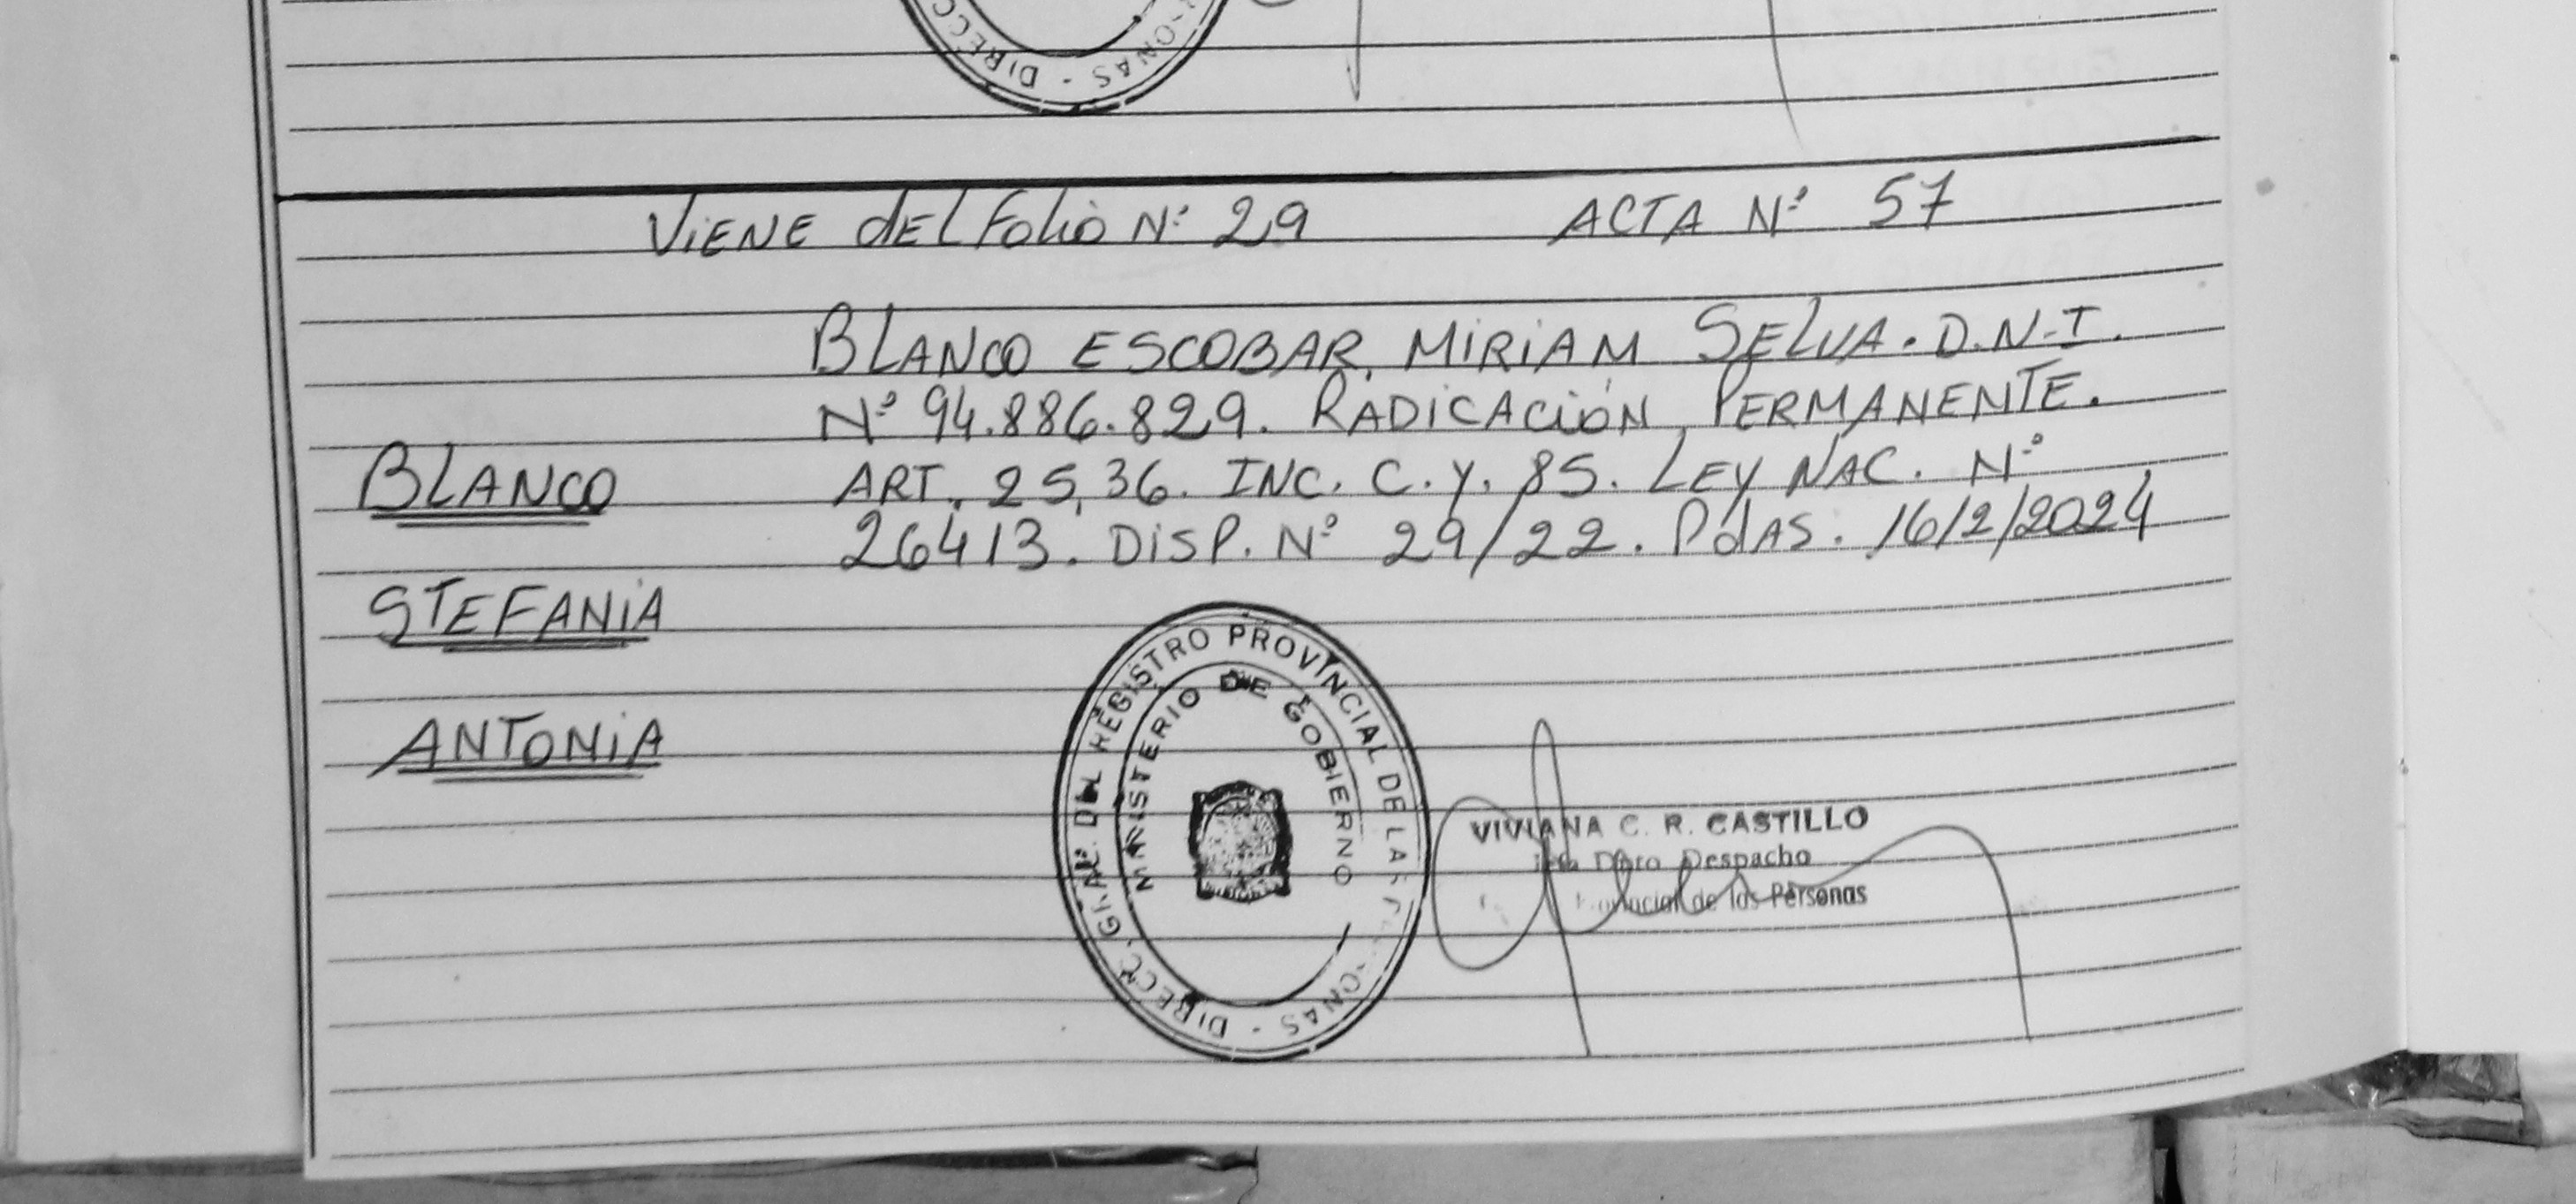 DIRECC
ONAS - DIREC
VIENE dEL Folio N° 29 ACTA N° 57
BLANCO ESCOBAR, MIRIAM SELVA. D.N.I.
N° 94.886.829. RADICACIÓN PERMANENTE.
BLANCO ART. 25, 36. INC. C. Y. 85. LEY NAC. N°
26413. DISP. N° 29/22. PdAS. 16/2/2024
STEFANIA
ANTONIA
DIRECC. GRAL. DEL REGISTRO PROVINCIAL DE LAS PERSONAS
MINISTERIO DE GOBIERNO
VIVIANA C. R. CASTILLO
Jefa Dpto. Despacho
Provincial de las Personas